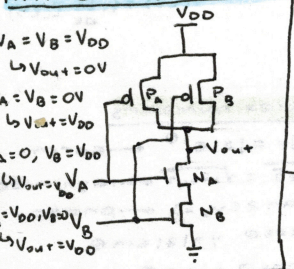 V_A = V_B = V_DD
↳ V_out = 0V
A = V_B = 0V
↳ V_out = V_DD
=0, V_B = V_DD
↳ V_out = V_DD
=V_DD, V_B=0
↳ V_out = V_DD
V_DD
P_A
P_B
V_out
V_A
N_A
V_B
N_B